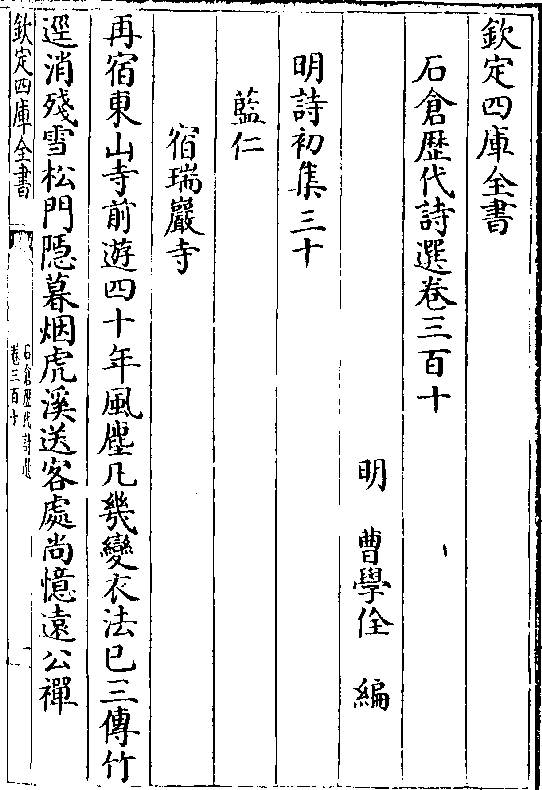 欽定四庫全書
石倉歷代詩選卷三百十
明 曹學佺 編
明詩初集三十
藍仁
宿瑞巖寺
再宿東山寺前遊四十年風塵凡幾變衣法已三傳竹
逕消殘雪松門隠暮烟虎溪送客處尚憶遠公禪
欽定四庫全書
石倉歷代詩選
卷三百十
一